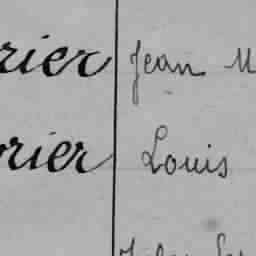 rier Jean M
rier Louis